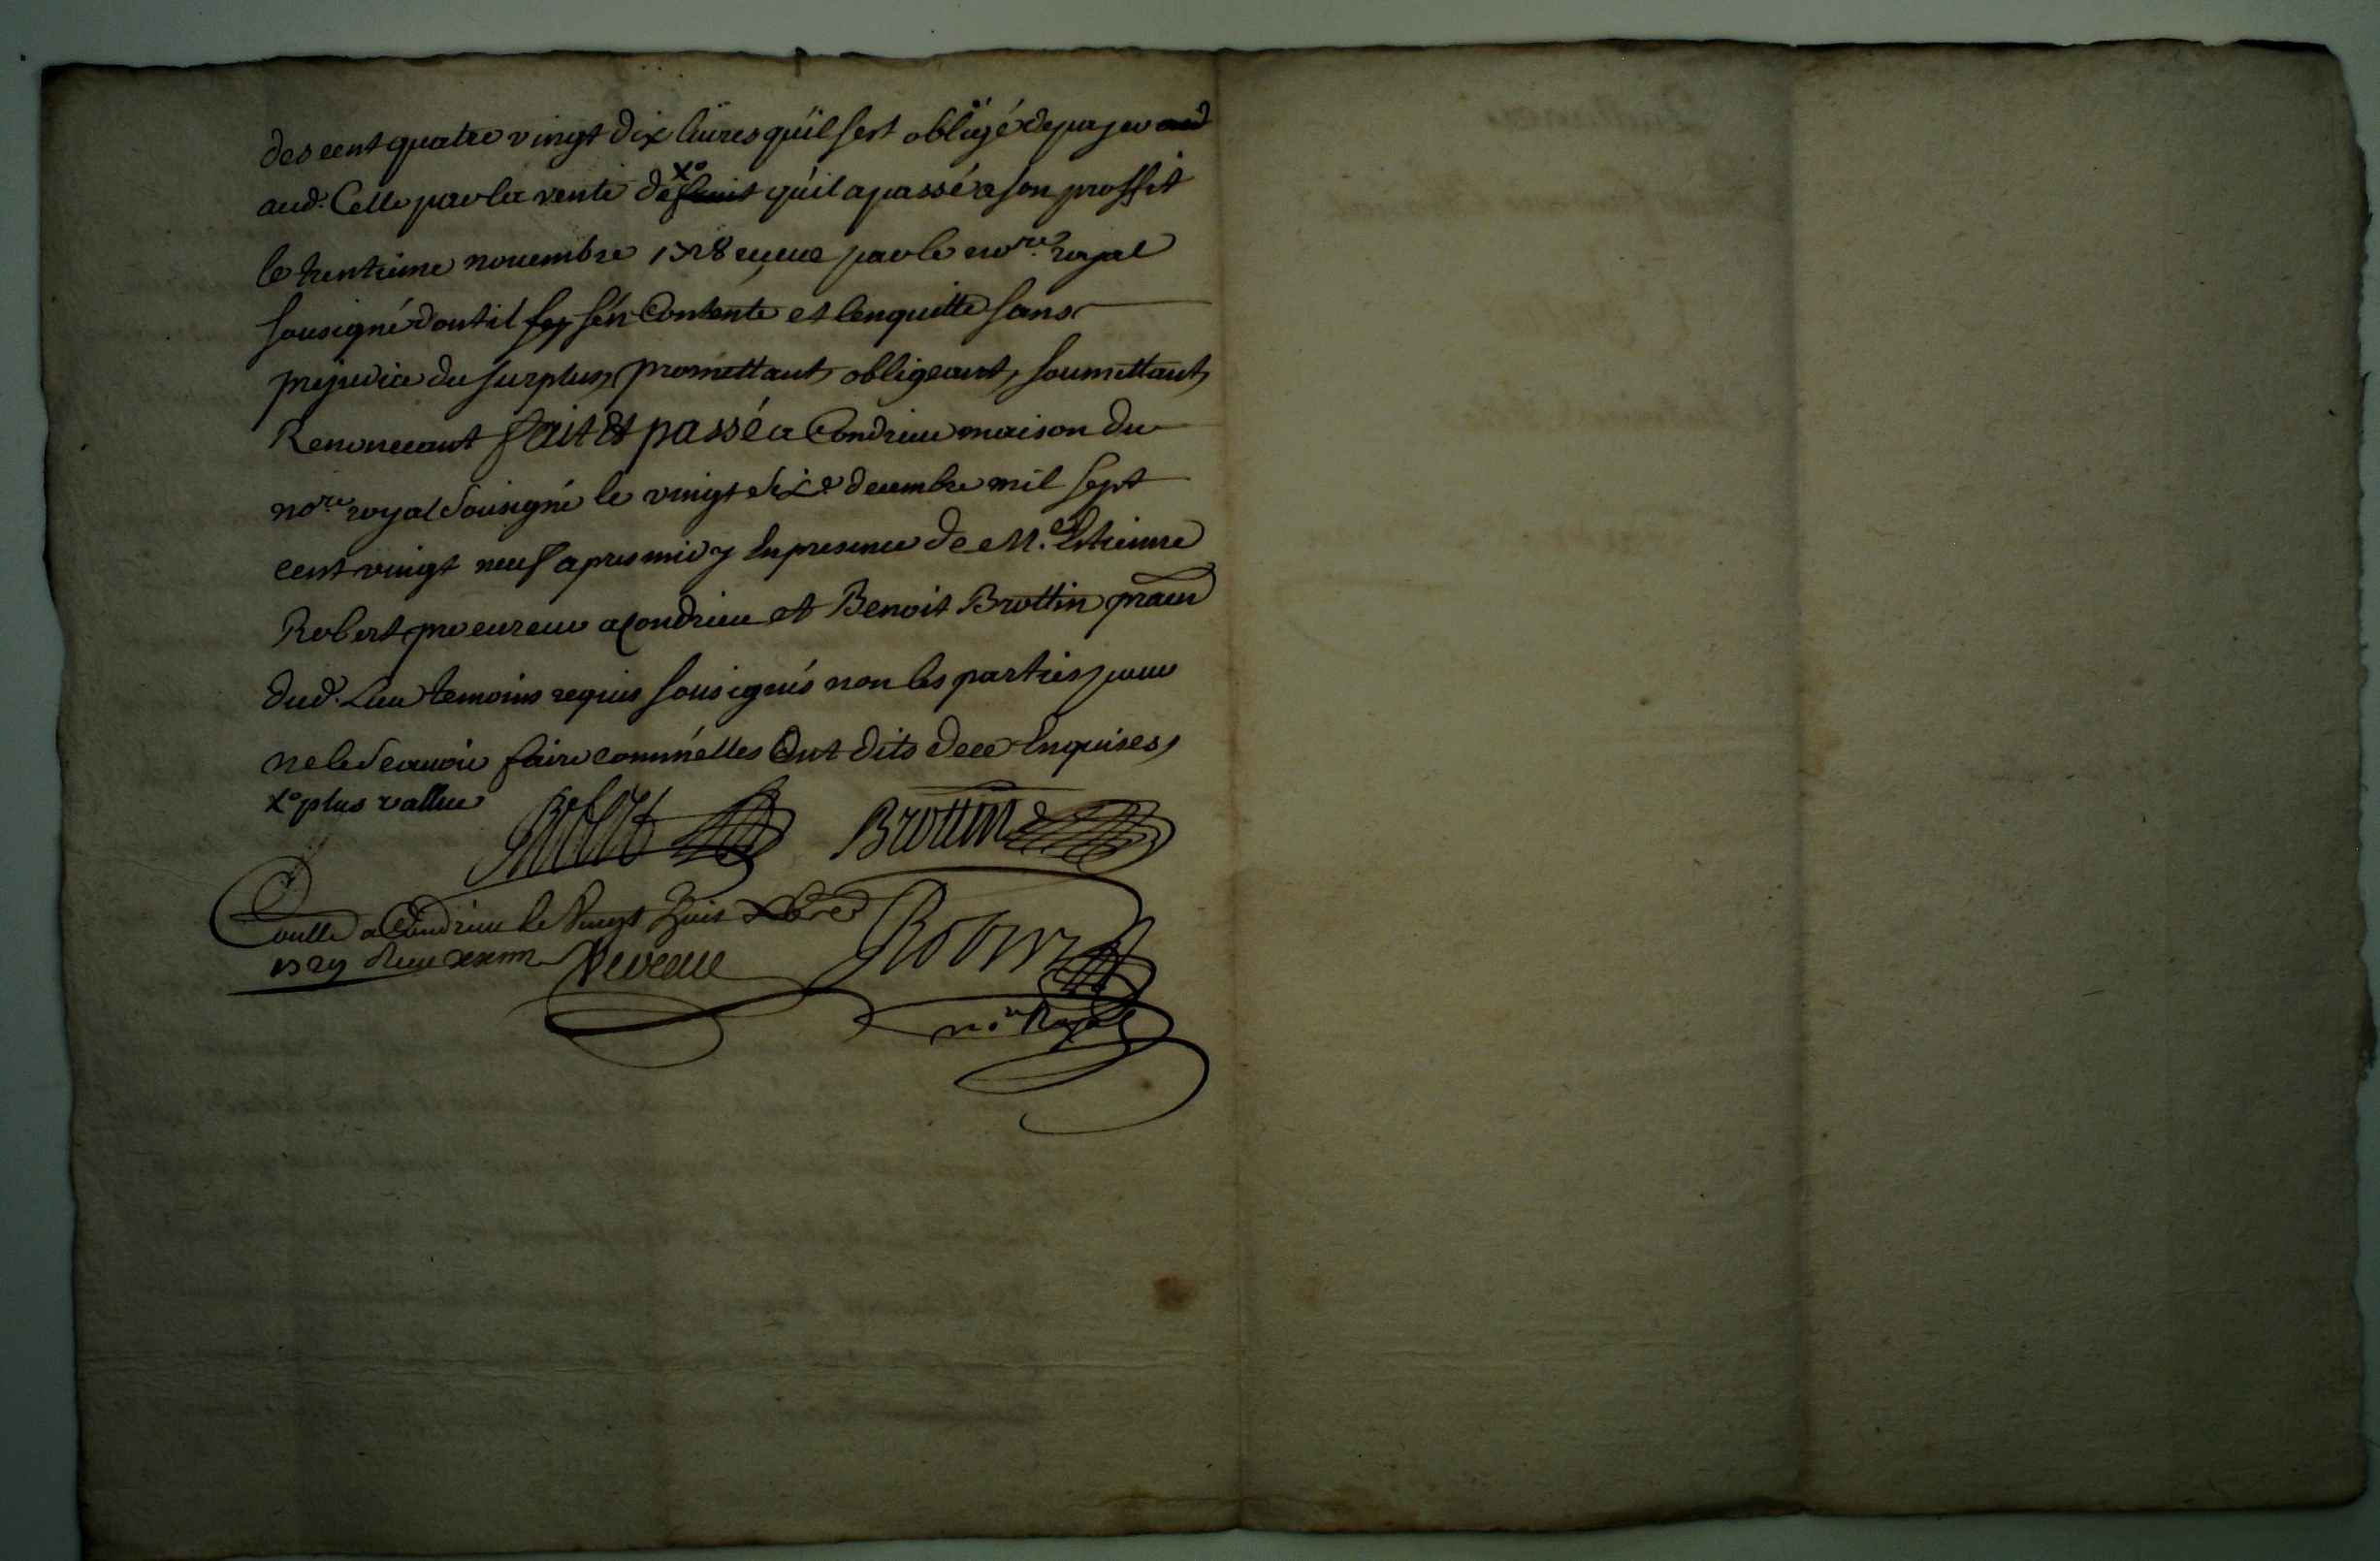 des cent quatre vingt dix livres qu'il sest obligé de payer aud
aud. Celle par la vente de qu'il a passé a son proffit
le trentieme novembre 1728 reçeue par le no.re royal
sousigné dont il sen contente et lenquitte sans
prejudice du surplus, promettant, obligeant, soumettant,
Renoncant fait et passé a Condrieu maison du
no.re royal sousigné le vingt six.e decembre mil sept
cent vingt neuf apres midy En presence de M.e Estienne
Robert procureur a Condrieu et Benoit Brottin
dud. Lieu temoins requis sousignés non les parties pour
ne le scavoir faire comm'elles Ont dits de ce Enquises,
x.o plus vallue
Robert Brottin
Conllé a Condrieu le vingt huit xbre
1729 Reçu
no.re Royal